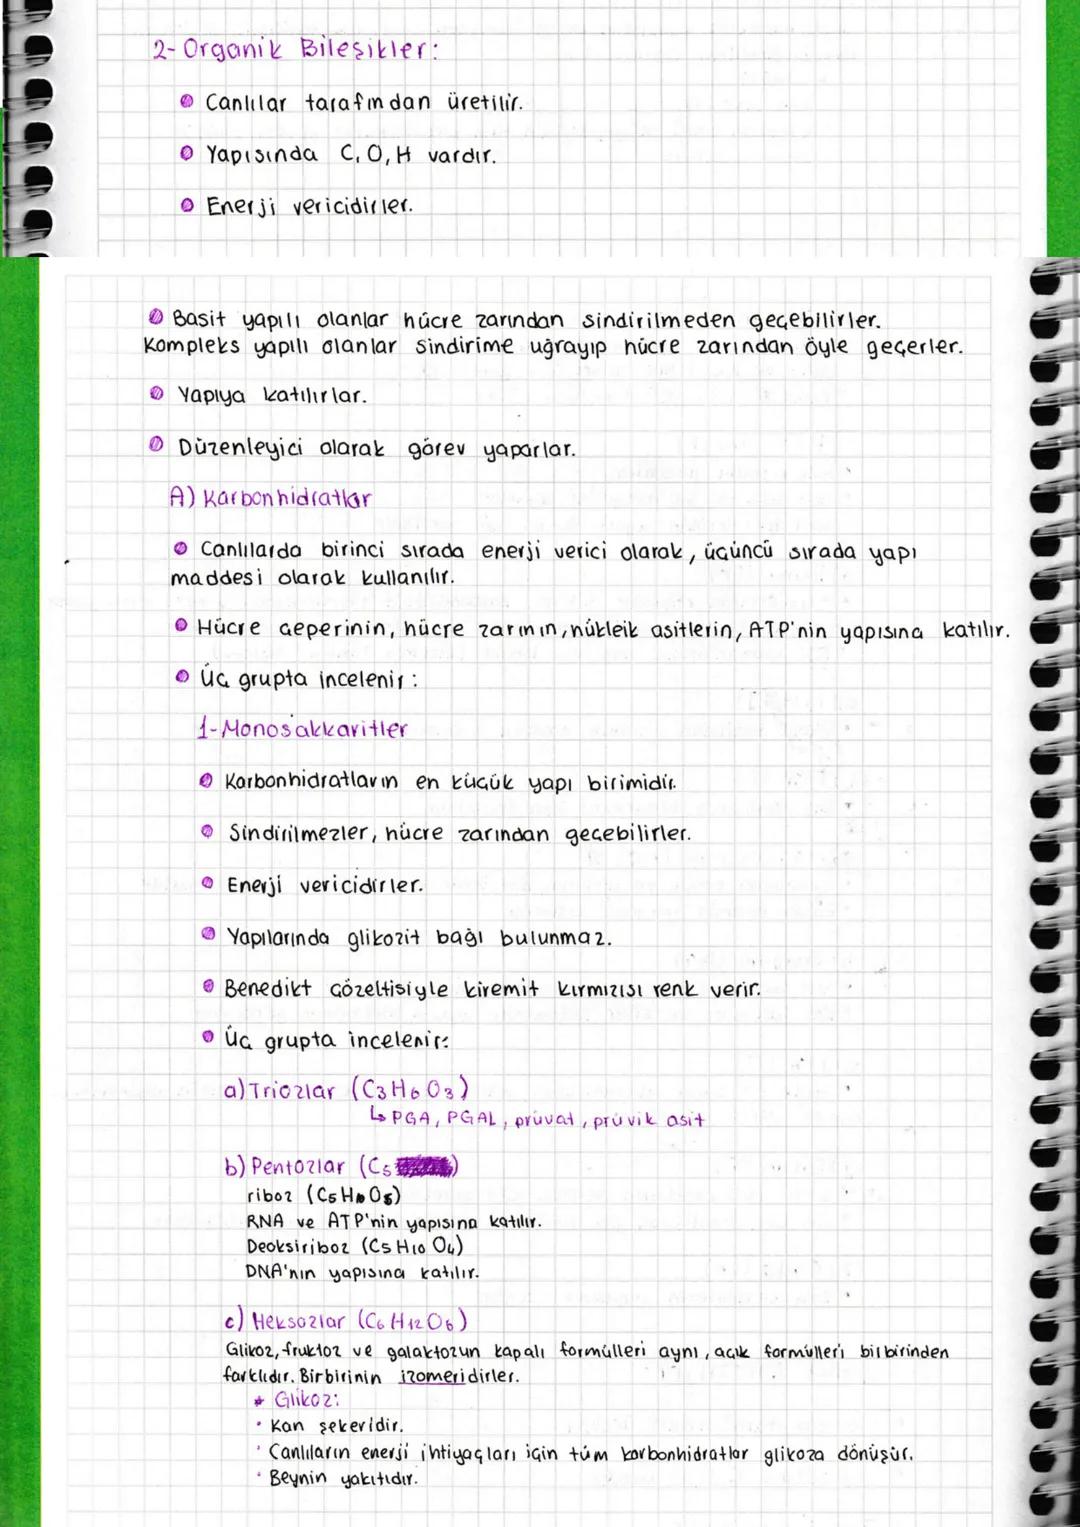 2- Organik Bileşikler:
Canlılar tarafından üretilir.
Yapısında C, O, H vardır.
Enerji vericidirler.
Basit yapılı olanlar hücre zarından sindirilmeden geçebilirler.
Kompleks yapılı olanlar sindirime uğrayıp hücre zarından öyle geçerler.
Yapıya katılırlar.
Düzenleyici olarak görev yaparlar.
A) Karbonhidratlar
Canlılarda birinci sırada enerji verici olarak, üçüncü sırada yapı
maddesi olarak kullanılır.
Hücre çeperinin, hücre zarının, nükleik asitlerin, ATP'nin yapısına katılır.
Üç grupta incelenir:
1-Monosakkaritler
Karbonhidratların en küçük yapı birimidir.
Sindirilmezler, hücre zarından geçebilirler.
Enerji vericidirler.
Yapılarında glikozit bağı bulunmaz.
Benedikt çözeltisiyle kiremit kırmızısı renk verir.
Üç grupta incelenir:
a) Triozlar (C3H6O3)
↳ PGA, PGAL, prüvat, prüvik asit
b) Pentozlar (C5 )
riboz (C5H10O5)
RNA ve ATP'nin yapısına katılır.
Deoksiriboz (C5H10O4)
DNA'nın yapısına katılır.
c) Heksozlar (C6H12O6)
Glikoz, fruktoz ve galaktozun kapalı formülleri aynı, açık formülleri birbirinden
farklıdır. Birbirinin izomeridirler.
* Glikoz:
• Kan şekeridir.
• Canlıların enerji ihtiyaçları için tüm karbonhidratlar glikoza dönüşür.
• Beynin yakıtıdır.